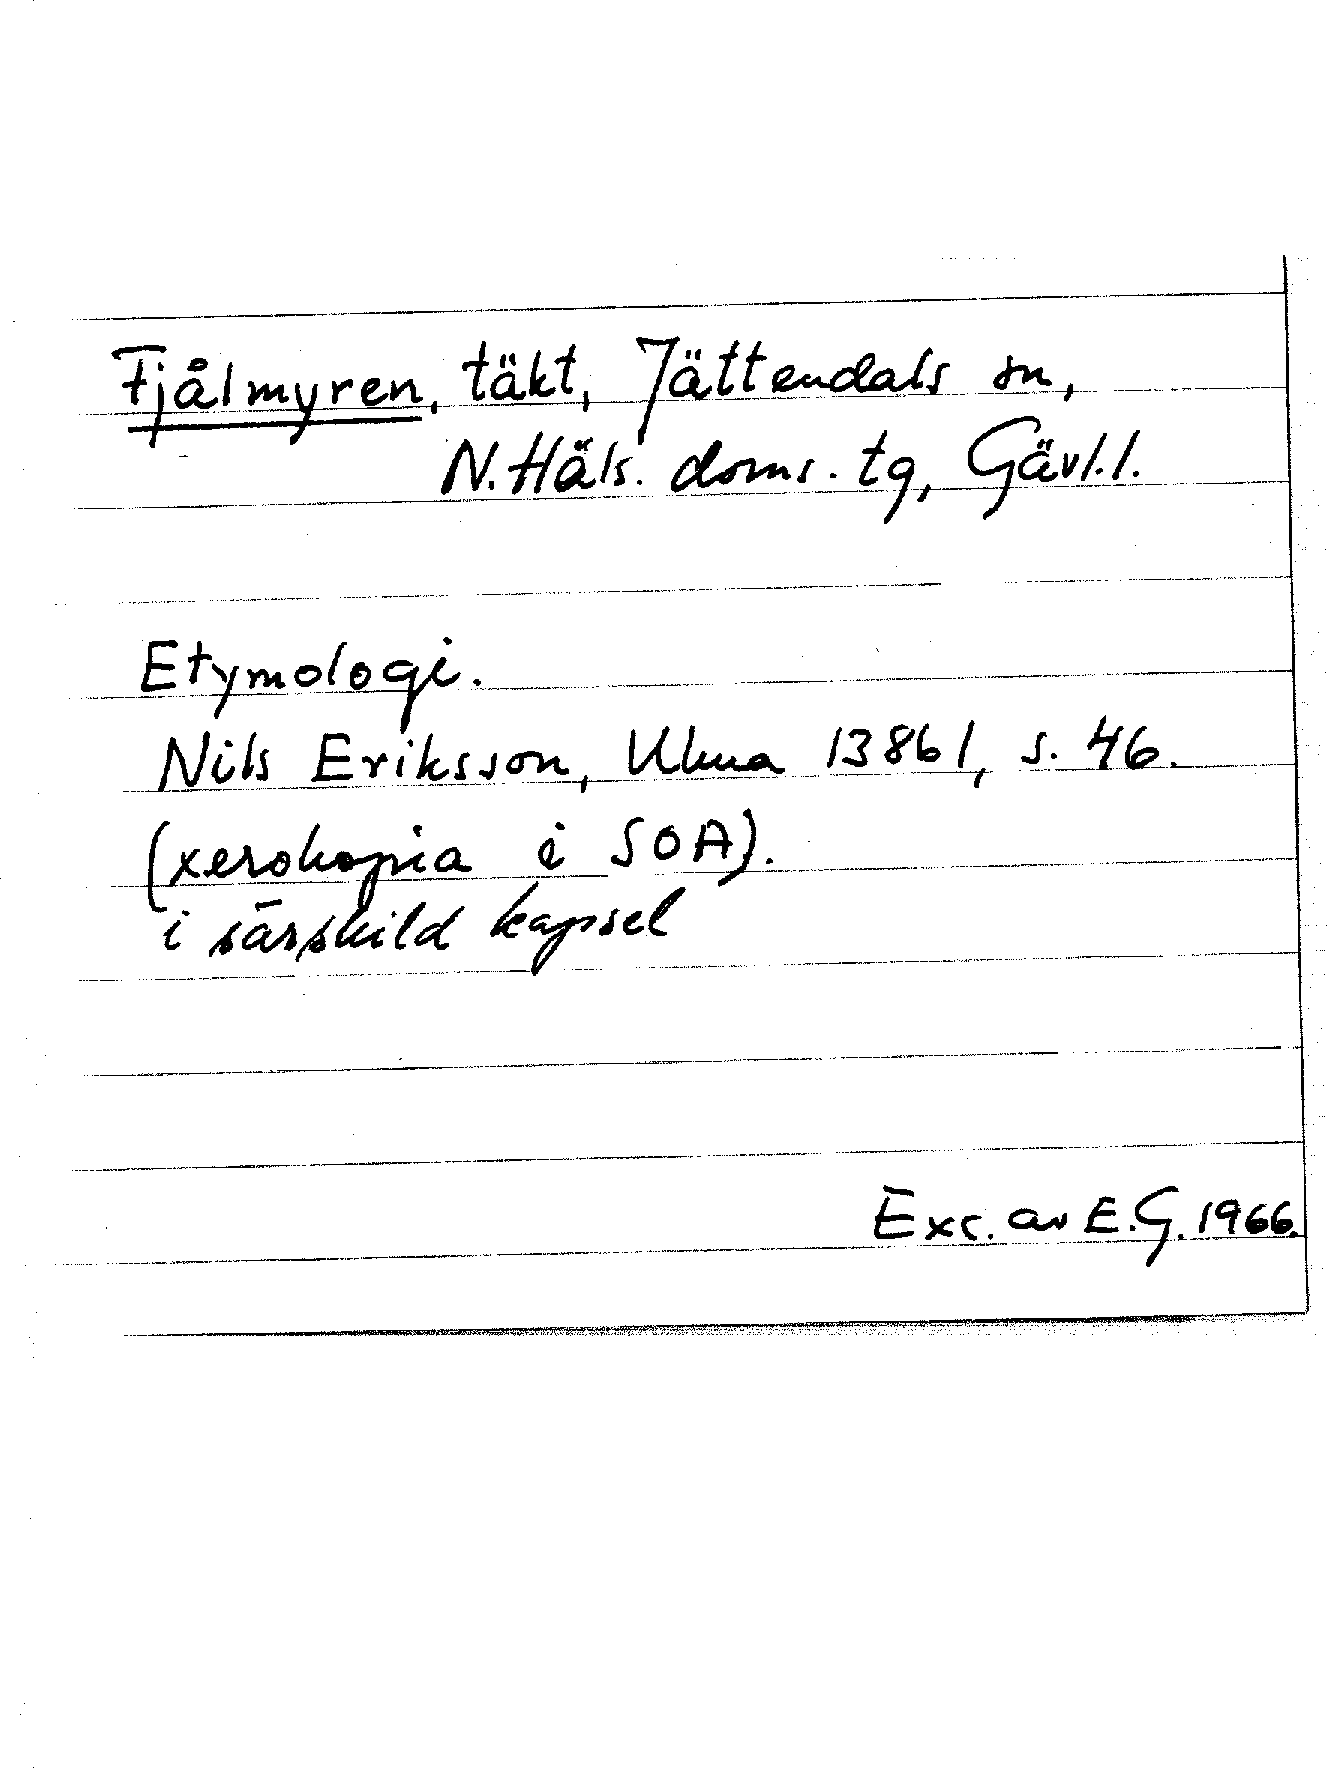 Fjålmyren, täkt, Jättendals sn,
N. Häls. doms. tg, Gävl. l.
Etymologi.
Nils Eriksson, Ulma 13861, s. 46.
(xerokopia i SOA).
i särskild kapsel
Exc. av E.G. 1966.